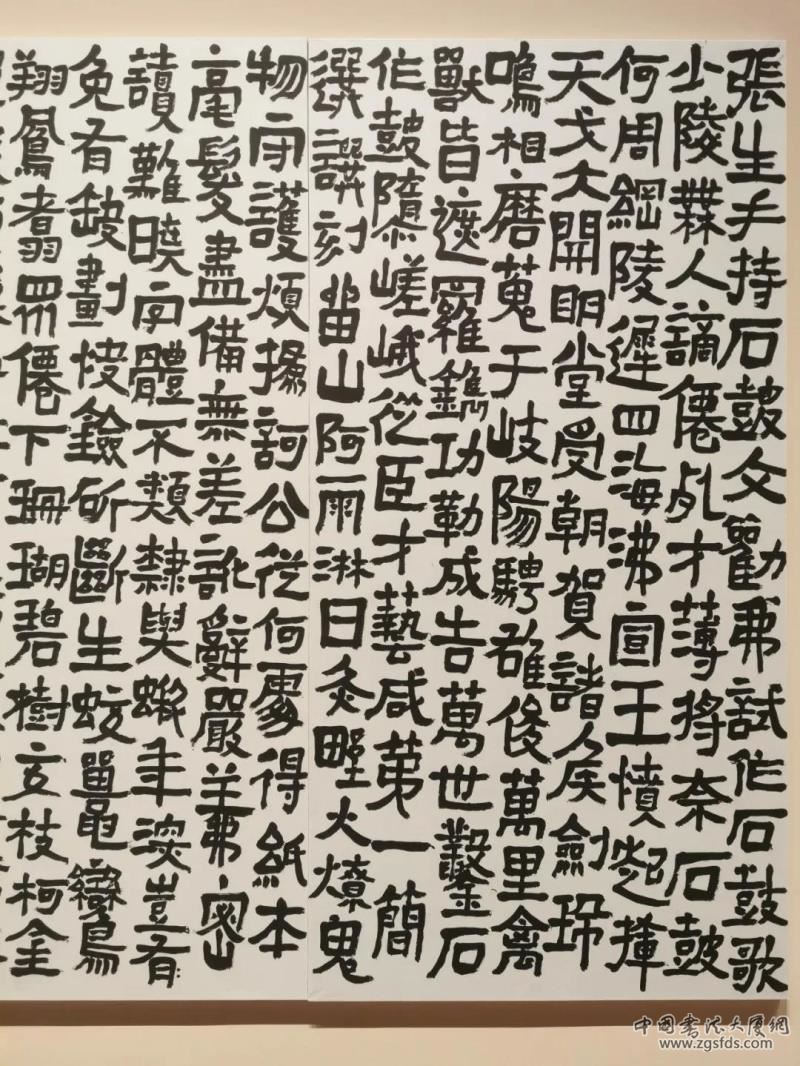 張生手持石鼓文勸我試作石鼓歌
少陵無人謫僊死才薄將奈石鼓
何周綱陵遲四海沸宣王憤起揮
天戈大開明堂受朝賀諸侯劍珮
鳴相磨蒐于岐陽騁雄俊萬里禽
獸皆遮羅鐫功勒成告萬世鑿石
作鼓隳嵯峨從臣才藝咸第一簡
選譔刻留山阿雨淋日灸野火燎鬼
物守護煩撝訶公從何處得紙本
毫髮盡備無差訛辭嚴義密
讀難曉字體不類隸與蝌年深豈有
免有缺畫快劍斫斷生蛟鼉鸞
翔鳳翥眾僊下珊瑚碧樹交枝柯金
中国书法大厦網
www.zgsfds.com